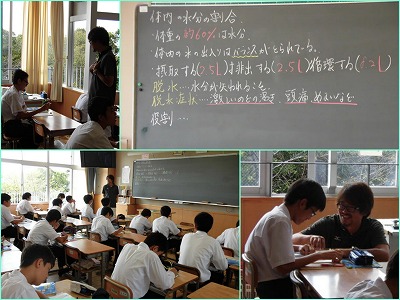 体内の水分の割合
・体重の約60%は水分。
・体内の水の出入りはバランスがとられている。
・摂取する(2.5L)排出する(2.5L)循環する(
脱水…水分が失われること
脱水症状…激しいのどの渇き、頭痛、めまいなど
役割…